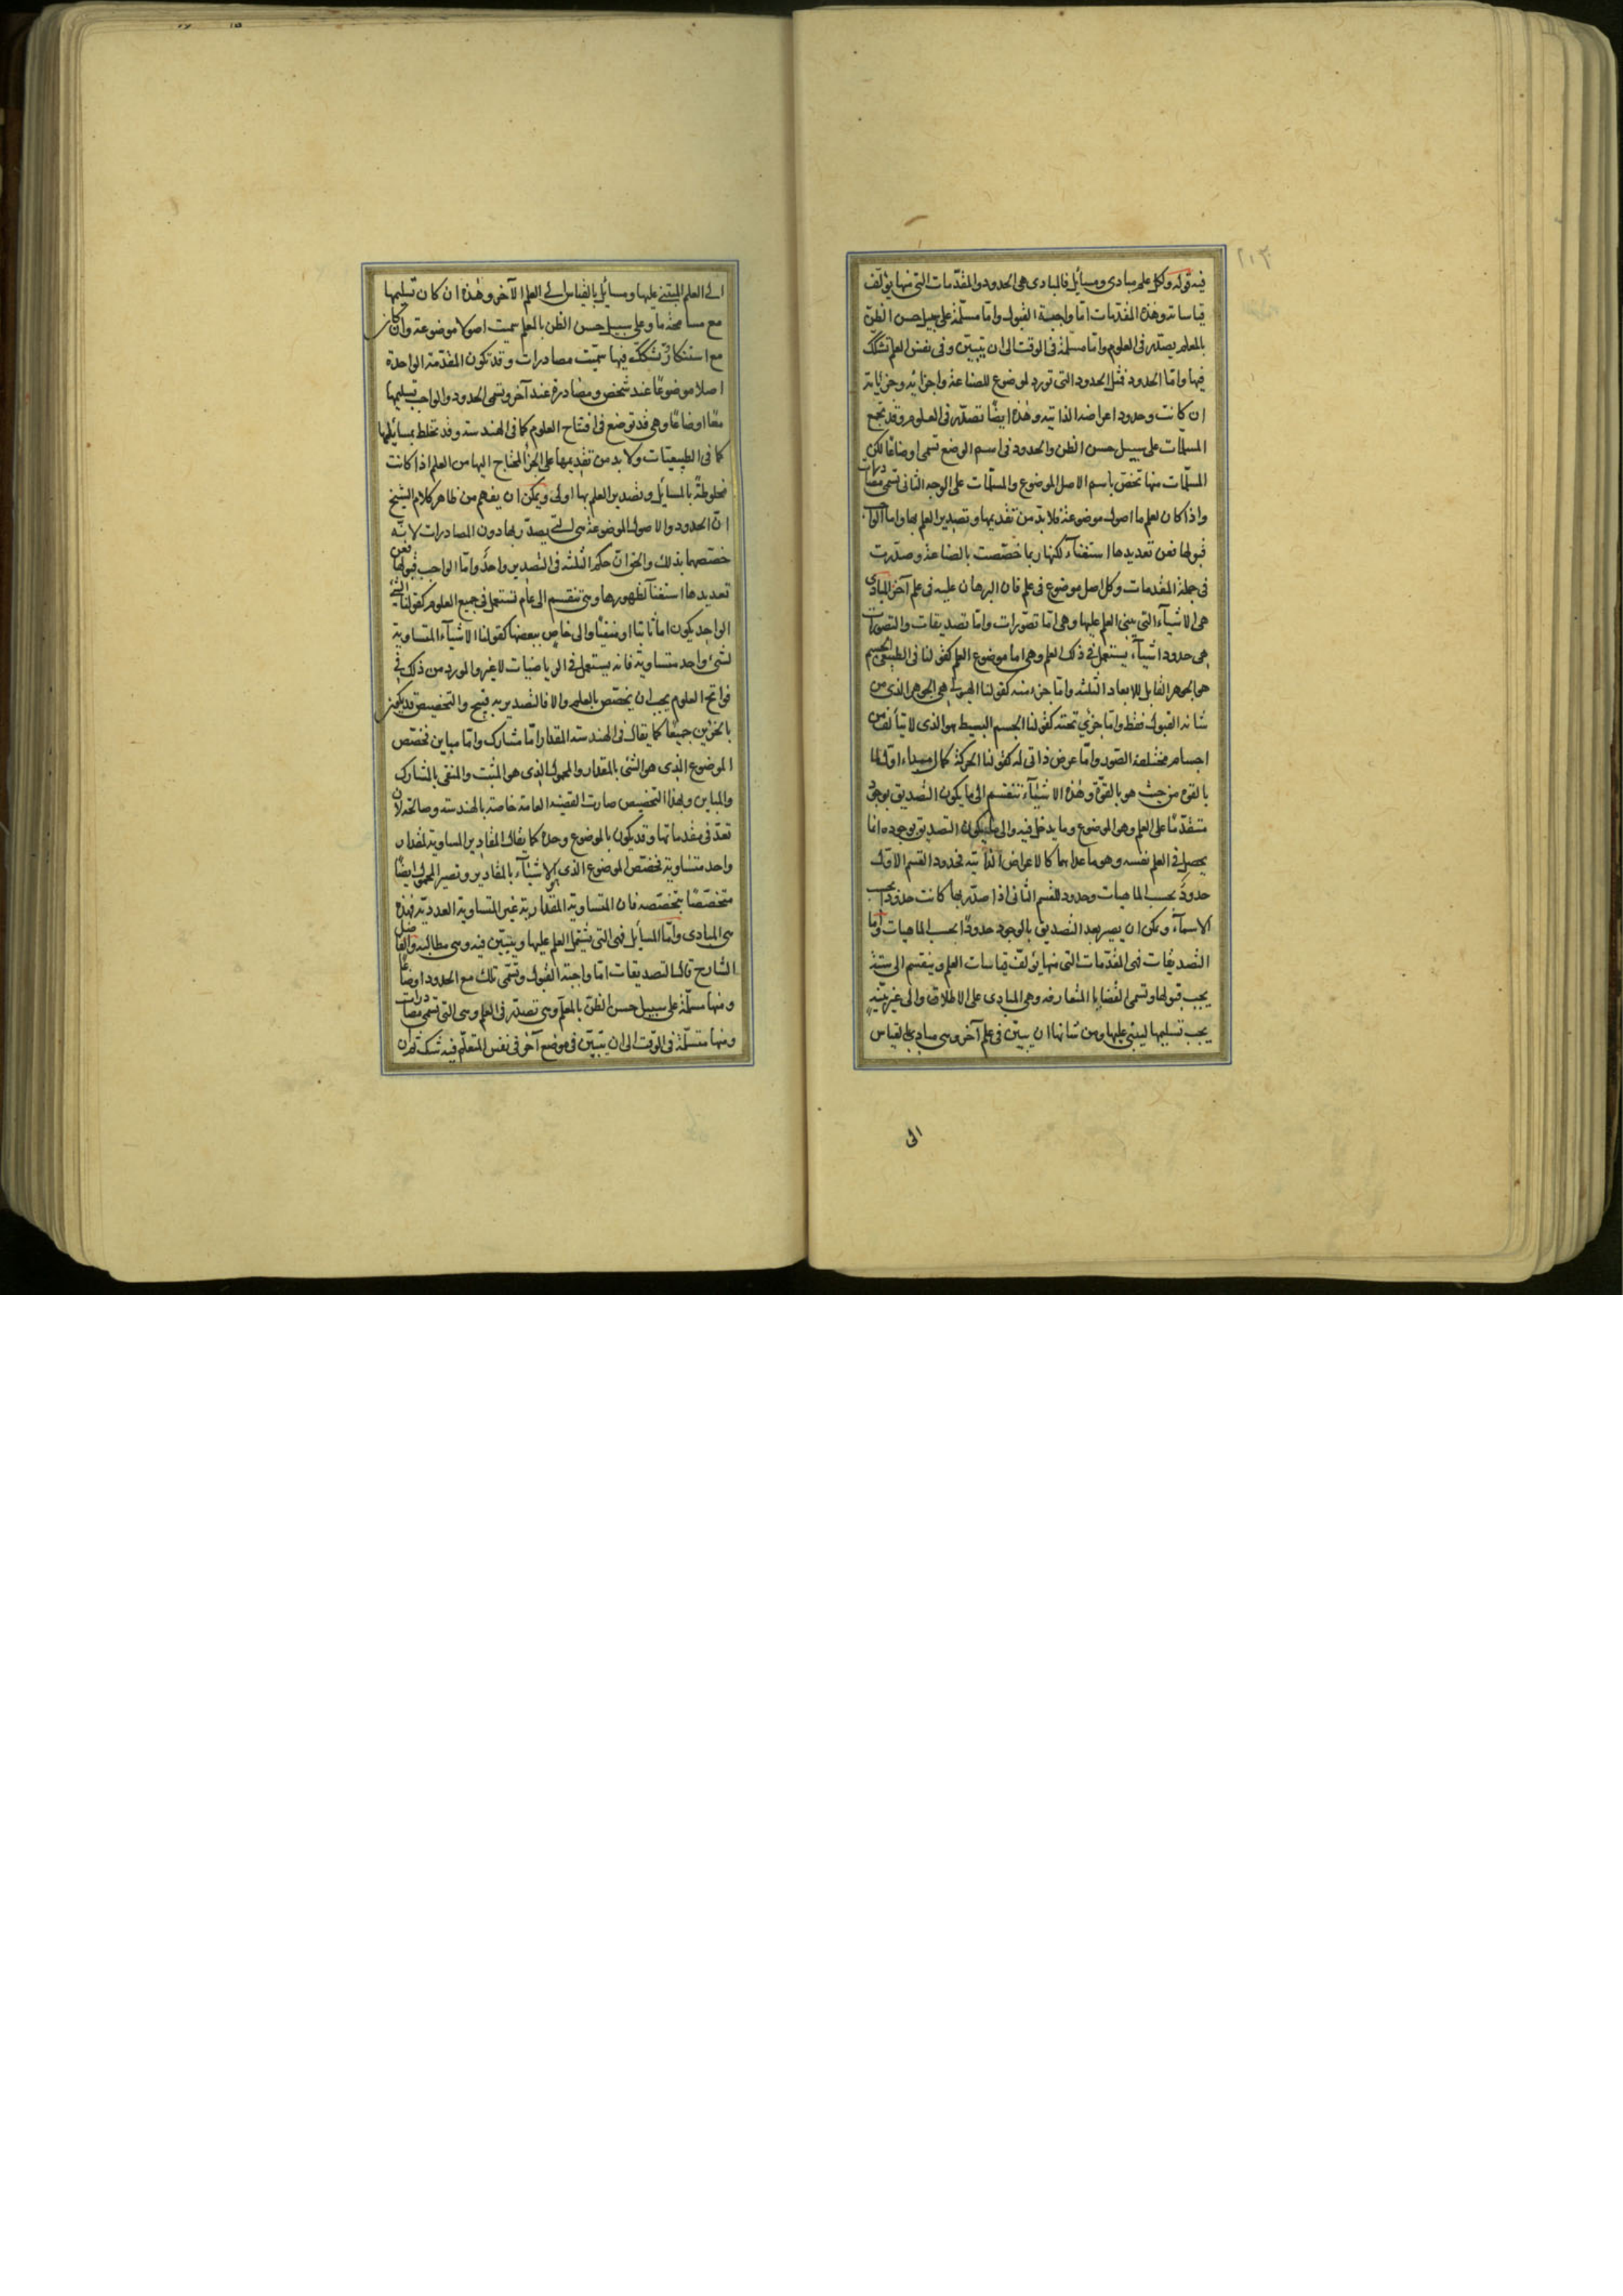 فيه قوله ولكل علم مبادى ومسائل فالمبادى هى الحدود والمقدّمات التى منها يؤلّف
قياساته وهذه المقدمات امّا واجبة القبول وامّا مسلّمة على سبيل حسن الظنّ
بالمعلم يصدّر فى العلوم وامّا مسلّمة فى الوقت الى ان يتبيّن وفى نفس العلم تشكك
فيها وامّا الحدود فمثل الحدود التى تورد لموضوع للصناعة واجزائه وجزئياته
ان كانت وحدود اعراضه الذاتيه وهذه ايضًا تصدّر فى العلوم وقد تجمع
المسلمات على سبيل حسن الظن والحدود فى اسم الوضع تسمى اوضاعًا لكن
المسلّمات منها تختصّ باسم الاصل الموضوع والمسلّمات على الوجه الثانى تسمى مصادرات
واذا كان لعلم ما اصول موضوعة فلا بدّ من تقديمها وتصدير العلم بها واما الواجب
قبولها فعن تعديدها استغناء لكنها ربما خصّصت بالصناعة وصدّرت
فى جملة المقدمات وكل اصل موضوع فى علم فان البرهان عليه فى علم آخر المبادى
هى الاشياء التى يبنى العلم عليها وهى امّا تصوّرات وامّا تصديقات والتصورات
هى حدود اشياء يستعمل فى ذلك العلم وهى اما موضوع العلم كقولنا فى الطبيعى الجسم
هو الجوهر القابل للابعاد الثلثه وامّا جزء منه كقولنا الهيولى هى الجوهر الذى من
شانه القبول فقط وامّا جزئى تحته كقولنا الجسم البسيط هو الذى لا يتألف من
اجسام مختلفة الصور وامّا عرض ذاتى له كقولنا الحركة كمال اول لما
بالقوه من حيث هو بالقوّة وهذه الاشياء تنقسم الى ما يكون التصديق بوجوده
متقدّمًا على العلم وهو الموضوع وما يدخل فيه والى ما يكون التصديق بوجوده انما
يحصل فى العلم نفسه وهو ما عداهما كالاعراض الذاتيّه فحدود القسم الاول
حدودٌ بحسب الماهيات وحدود القسم الثانى اذا صدّر بها كانت حدودًا بحسب
الاسماء ويمكن ان يصير بعد التصديق بالوجود حدودًا بحسب الماهيات وامّا
التصديقات فهى المقدّمات التى منها يؤلف قياسات العلم وينقسم الى بيّنة
يجب قبولها وتسمى القضايا المتعارفه وهى المبادى على الاطلاق والى غير بيّنة
يجب تسليمها ليبتنى عليها ومن شانها ان يبيّن فى علم آخر وهى مبادى بالقياس
الى
الى العلم المبتنى عليها ومسائل بالقياس الى العلم الآخر وهذه ان كان تسليمها
مع مسامحة ما وعلى سبيل حسن الظن بالمعلم سميت اصولا موضوعة وان كان
مع استنكار وتشكك فيها سمّيت مصادرات وقد تكون المقدّمة الواحدة
اصلا موضوعًا عند شخص ومصادرة عند آخر وتسمى الحدود والواجب تسليمها
معًا اوضاعًا وهى قد توضع فى افتتاح العلوم كما فى الهندسة وقد تخلط بمسائلها
كما فى الطبيعيّات ولا بد من تقديمها على الجزء المحتاج اليها من العلم اذا كانت
مخلوطة بالمسائل وتصدير العلم بها اولى ويمكن ان يفهم من ظاهر كلام الشيخ
انّ الحدود والاصول الموضوعة هى التى يصدّر بها دون المصادرات لانّه
خصّصهما بذلك والحق انّ حكم الثلثه فى التصدير واحدٌ وامّا الواجب قبولها فعن
تعديدها استغناء لظهورها وهى تنقسم الى عام تستعمل فى جميع العلوم كقولنا الشىء
الواحد يكون اما ثابتا او منفيًا والى خاص ببعضها كقولنا الاشياء المتساوية
لشىء واحد متساوية فانه يستعمل فى الرياضيات لا غير والمورد من ذلك فى
فواتح العلوم يجب ان يخصّص بالعلم والا فالتصدير به قبيح والتخصيص قد يكون
بالجزئين جميعًا كما يقال فى الهندسة المقدار امّا مشارك وامّا مباين فخصّص
الموضوع الذى هو الشئ بالمقدار والمحمول الذى هو المثبت والمنفى بالمشارك
والمباين وبهذا التخصيص صارت القضية العامة خاصة بالهندسة وصالحة لان
تعدّ فى مقدماتها وقد يكون بالموضوع وحده كما يقال المقادير المساوية لمقدار
واحد متساوية فخصّص الموضوع الذى هو الاشياء بالمقادير وتصير المحمول ايضًا
متخصّصًا بتخصّصه فان المتساوية المقداريّة غير المتساوية العدديّة فهذه
هى المبادى وامّا المسائل فهى التى يشتمل العلم عليها ويتبيّن فيه وهى مطالبه والفاضل
الشارح قال التصديقات امّا واجبة القبول وتسمّى تلك مع الحدود اوضاعًا
ومنها مسلّمة على سبيل حسن الظنّ بالمعلّم وهى تصدّر فى العلم وهى التى تسمى مصادرات
ومنها متسلّمة فى الوقت الى ان يتبيّن فى موضع آخر فى نفس المتعلّم فيه شك